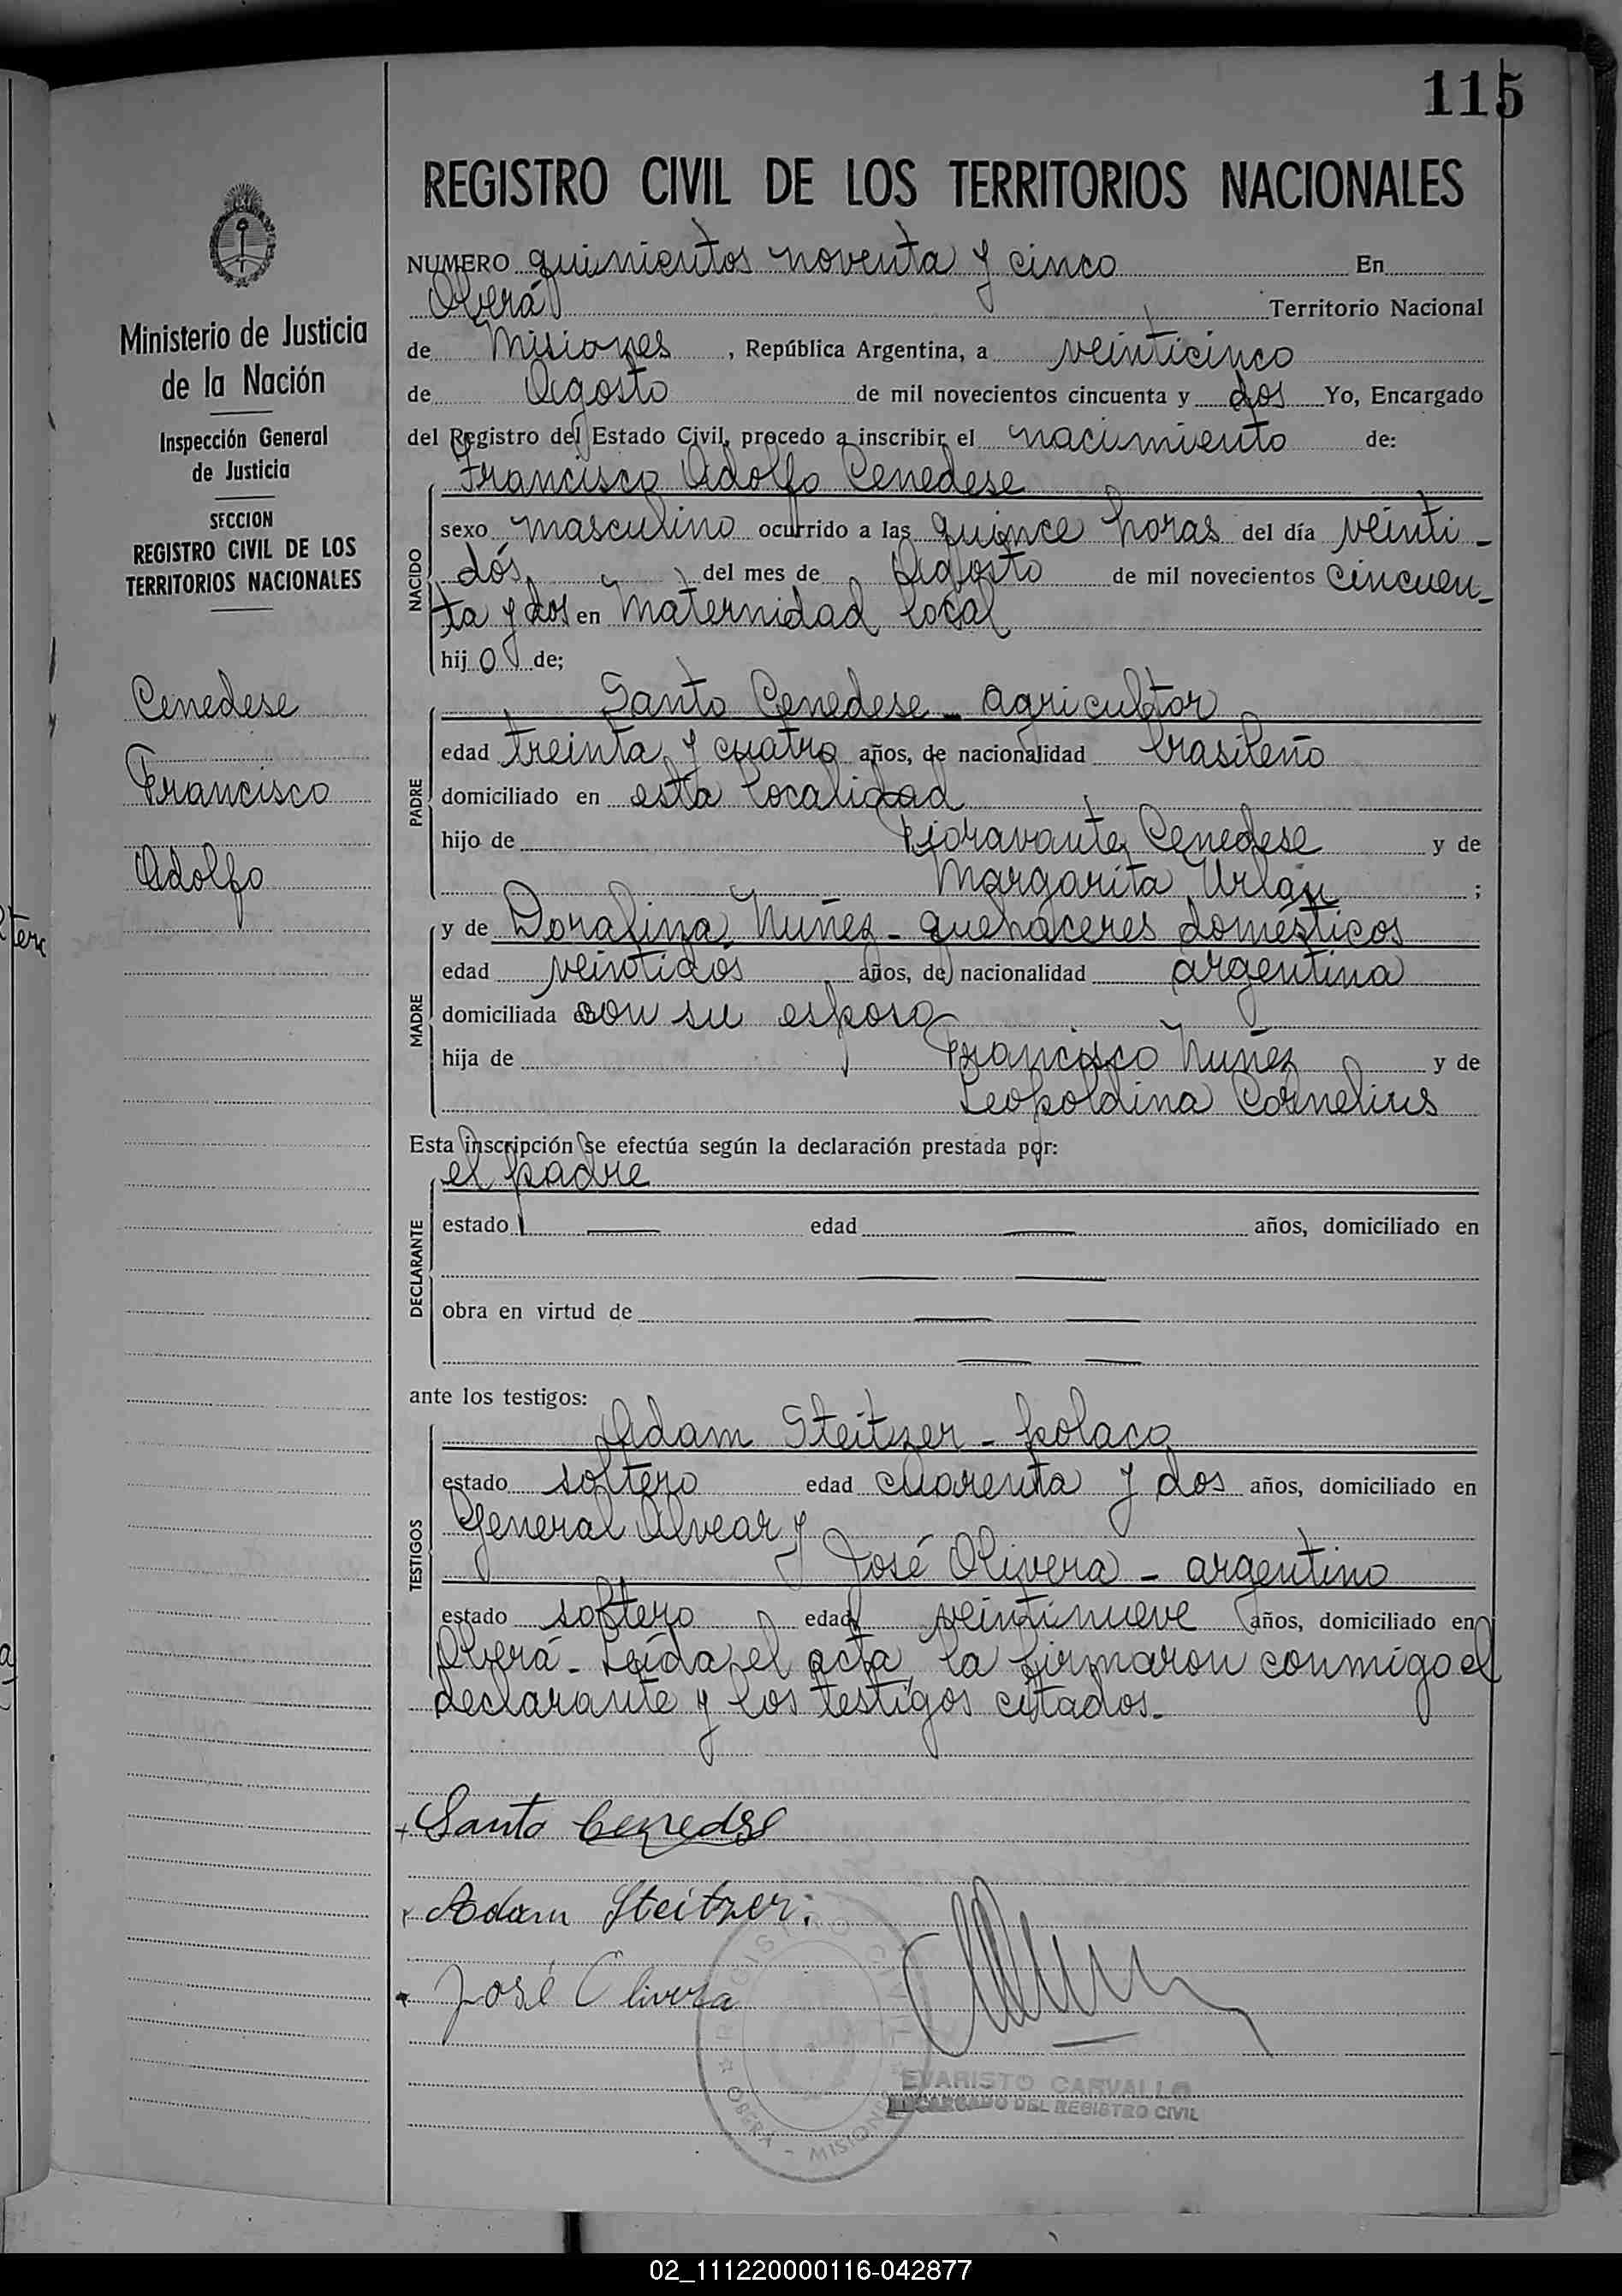 115
REGISTRO CIVIL DE LOS TERRITORIOS NACIONALES
NUMERO quinientos noventa y cinco En
Oberá Territorio Nacional
de Misiones, República Argentina, a veinticinco
de Agosto de mil novecientos cincuenta y dos Yo, Encargado
del Registro del Estado Civil, procedo a inscribir el nacimiento de:
Francisco Adolfo Cenedese
NACIDO
sexo masculino ocurrido a las quince horas del día veinti-
dós del mes de Agosto de mil novecientos cincuen-
ta y dos en Maternidad local
hijo de;
Santo Cenedese - agricultor
PADRE
edad treinta y cuatro años, de nacionalidad brasileño
domiciliado en esta localidad
hijo de Fioravante Cenedese y de
Margarita Urlan ;
y de Doralina Nuñez - quehaceres domésticos
MADRE
edad veintidos años, de nacionalidad argentina
domiciliada con su esposo
hija de Francisco Nuñez y de
Leopoldina Cornelius
Esta inscripción se efectúa según la declaración prestada por:
el padre
DECLARANTE
estado — edad — años, domiciliado en
— —
obra en virtud de — —
— —
ante los testigos:
Adam Steitzer - polaco
TESTIGOS
estado soltero edad cuarenta y dos años, domiciliado en
General Alvear y
José Olivera - argentino
estado soltero edad veintinueve años, domiciliado en
Oberá - Leída el acta la firmaron conmigo el
declarante y los testigos citados.-
+ Santo Cenedese
x Adam Steitzer.
x José Olivera
REGISTRO CIVIL
☆ OBERÁ - MISIONES ☆
EVARISTO CARVALLO
ENCARGADO DEL REGISTRO CIVIL
Ministerio de Justicia
de la Nación
Inspección General
de Justicia
SECCION
REGISTRO CIVIL DE LOS
TERRITORIOS NACIONALES
Cenedese
Francisco
Adolfo
02_111220000116-042877